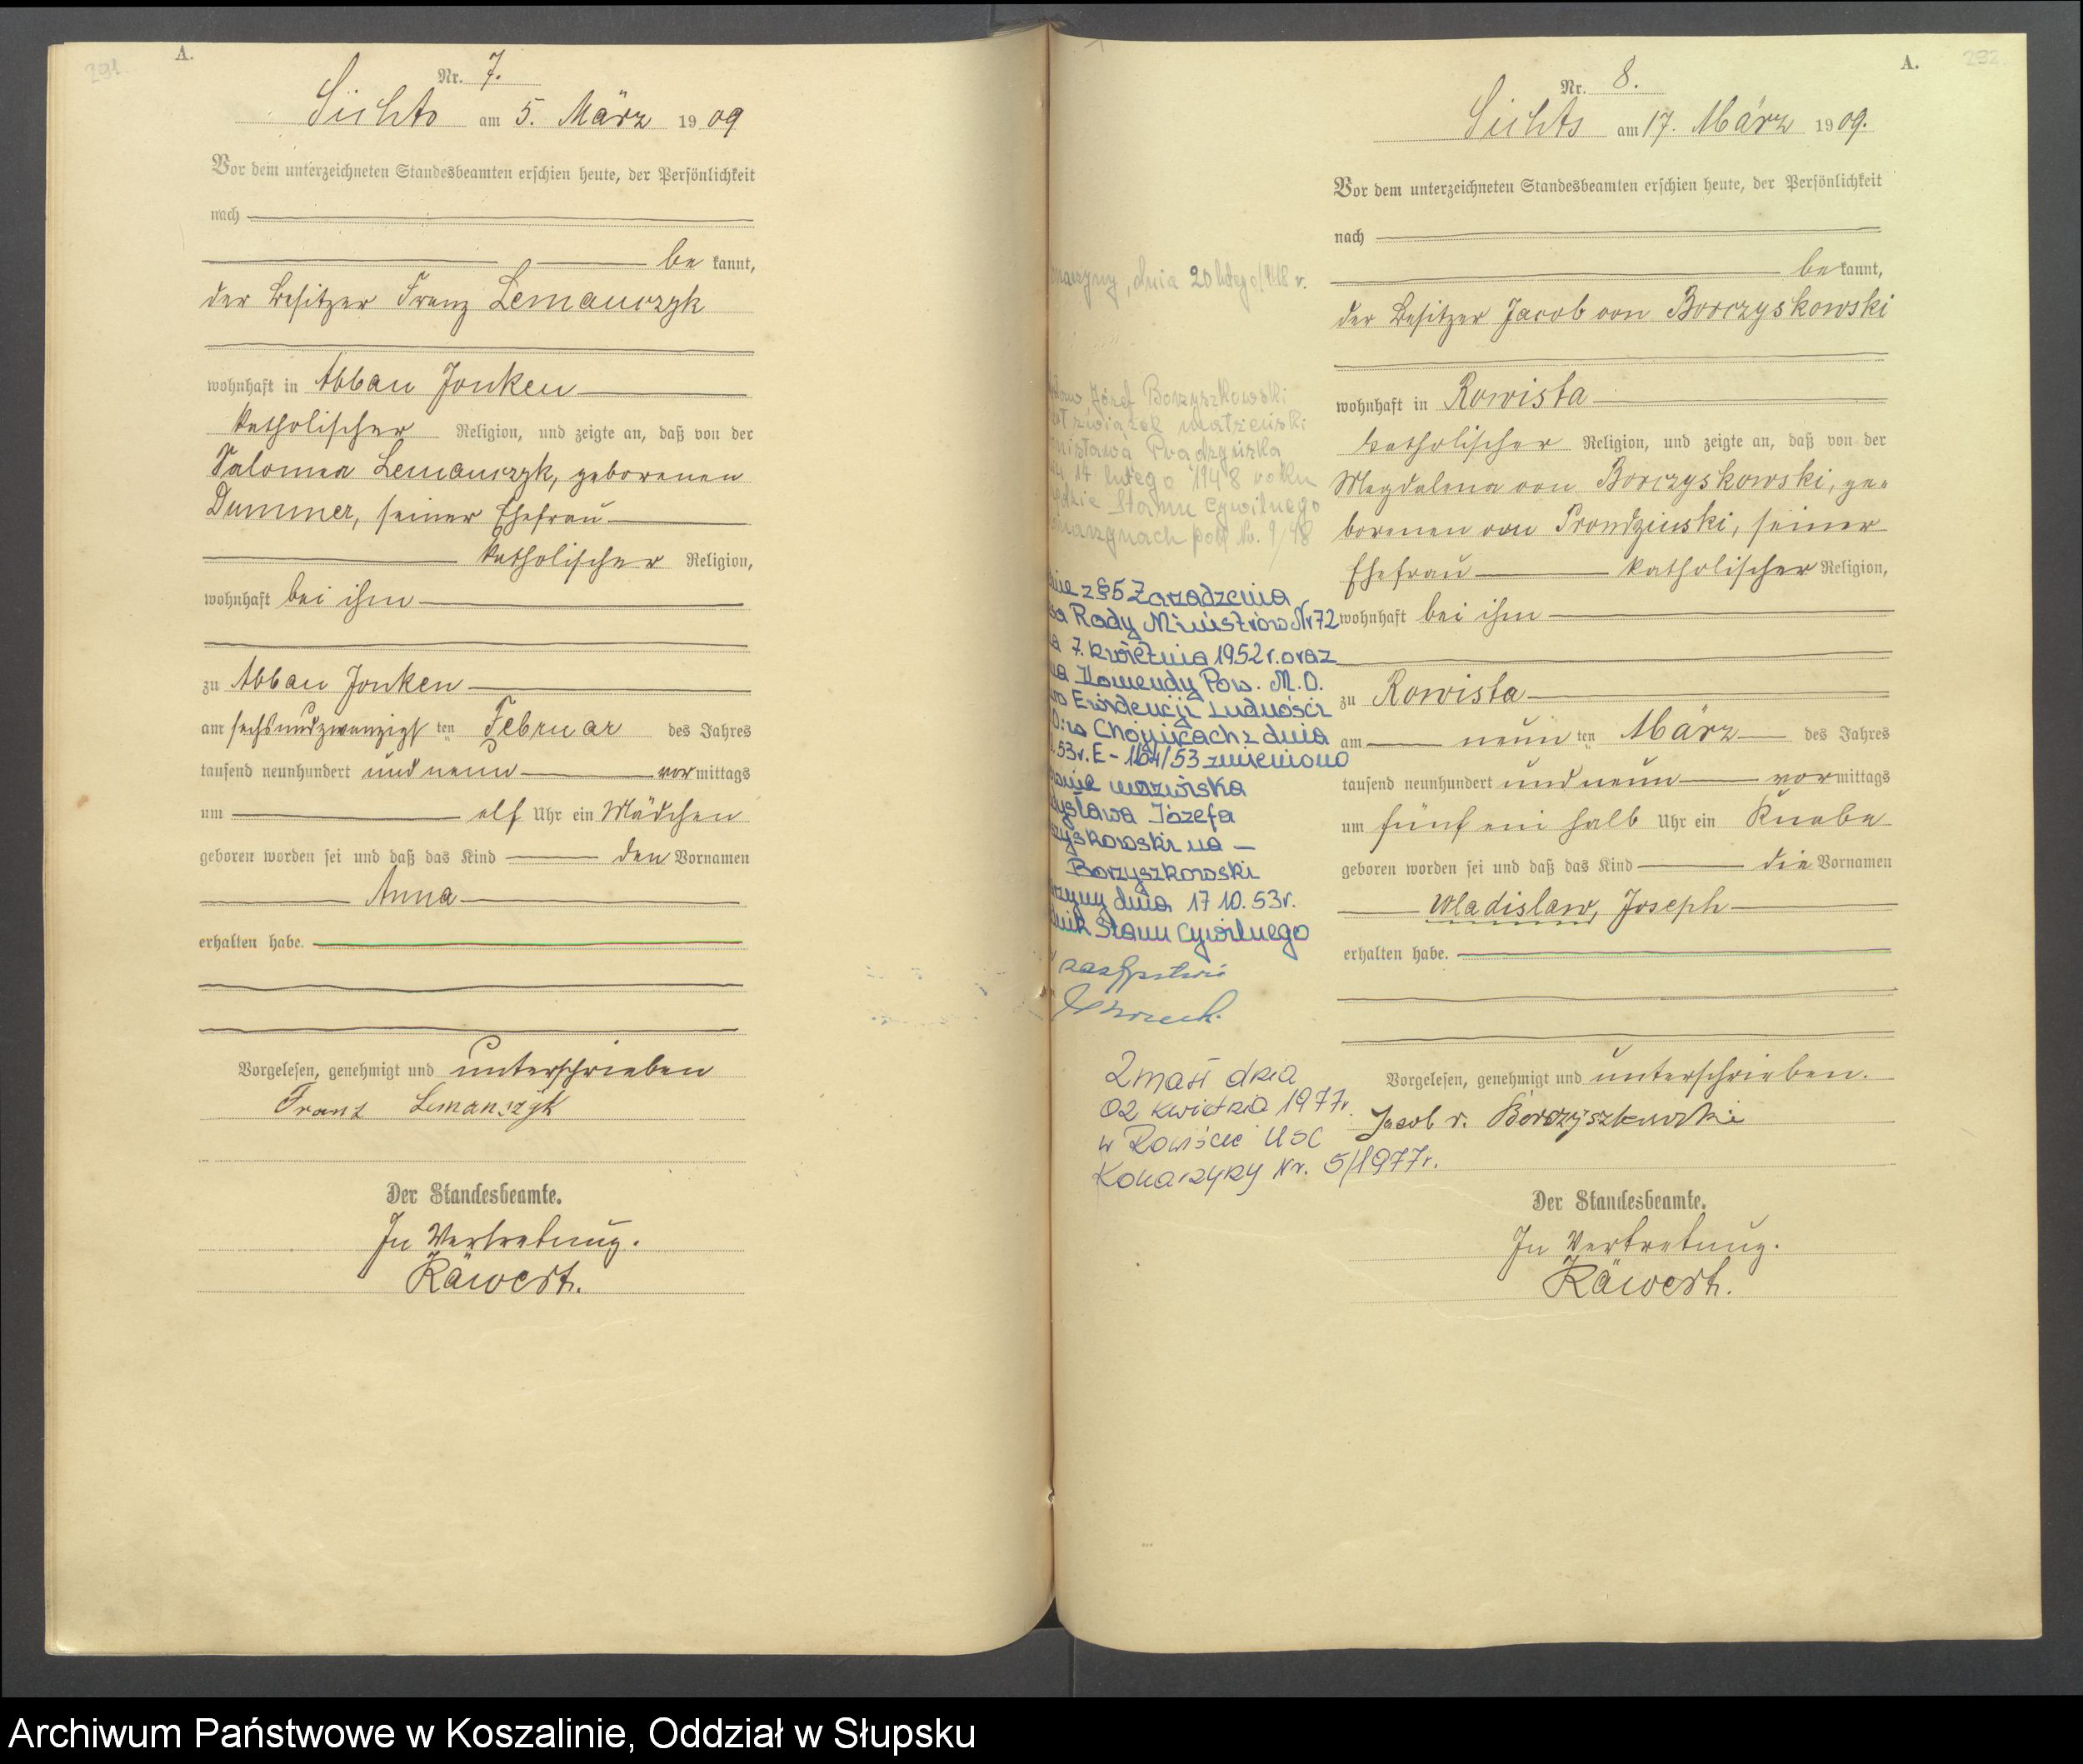 291.
A.
Nr. 7.
Sichts am 5. März 1909
Vor dem unterzeichneten Standesbeamten erschien heute, der Persönlichkeit
nach
be kannt,
der Besitzer Franz Lemanczyk
wohnhaft in Abbau Jonken
katholischer Religion, und zeigte an, daß von der
Salomea Lemanczyk, geborenen
Dummer, seiner Ehefrau
katholischer Religion,
wohnhaft bei ihm
zu Abbau Jonken
am sechsundzwanzigsten Februar des Jahres
tausend neunhundert und neun vormittags
um elf Uhr ein Mädchen
geboren worden sei und daß das Kind den Vornamen
Anna
erhalten habe.
Vorgelesen, genehmigt und unterschrieben
Franz Lemanczyk
Der Standesbeamte.
In Vertretung.
Räwert.
292.
A.
Nr. 8.
Sichts am 17. März 1909.
Vor dem unterzeichneten Standesbeamten erschien heute, der Persönlichkeit
nach
be kannt,
der Besitzer Jacob von Borczyskowski
wohnhaft in Rowista
katholischer Religion, und zeigte an, daß von der
Magdalena von Borczyskowski, ge-
borenen von Prondzinski, seiner
Ehefrau katholischer Religion,
wohnhaft bei ihm
zu Rowista
am neunten März des Jahres
tausend neunhundert und neun vormittags
um fünf ein halb Uhr ein Knabe
geboren worden sei und daß das Kind die Vornamen
Wladislaw, Joseph
erhalten habe.
Vorgelesen, genehmigt und unterschrieben.
Jacob v. Borczyszkowski
Der Standesbeamte.
In Vertretung.
Räwert.
dnia 20 lutego 1948 r.
Józef Borzyszkowski
związek małżeński
Prądzyńska
14 lutego 1948 roku
Stanu Cywilnego
pod Nr. 9/48
z §5 Zarządzenia
Rady Ministrów Nr 72
7. kwietnia 1952 r. oraz
Komendy Pow. M.O.
Ewidencji Ludności
Chojnicach z dnia
53 r. E-1164/53 zmieniono
nazwiska
Józefa
na
Borzyszkowski
dnia 17 10. 53 r.
Stanu Cywilnego
zastępstwie
Zmarł dnia
02 kwietnia 1977 r.
w Rowiście USC
Konarzyny Nr. 5/1977 r.
Archiwum Państwowe w Koszalinie, Oddział w Słupsku